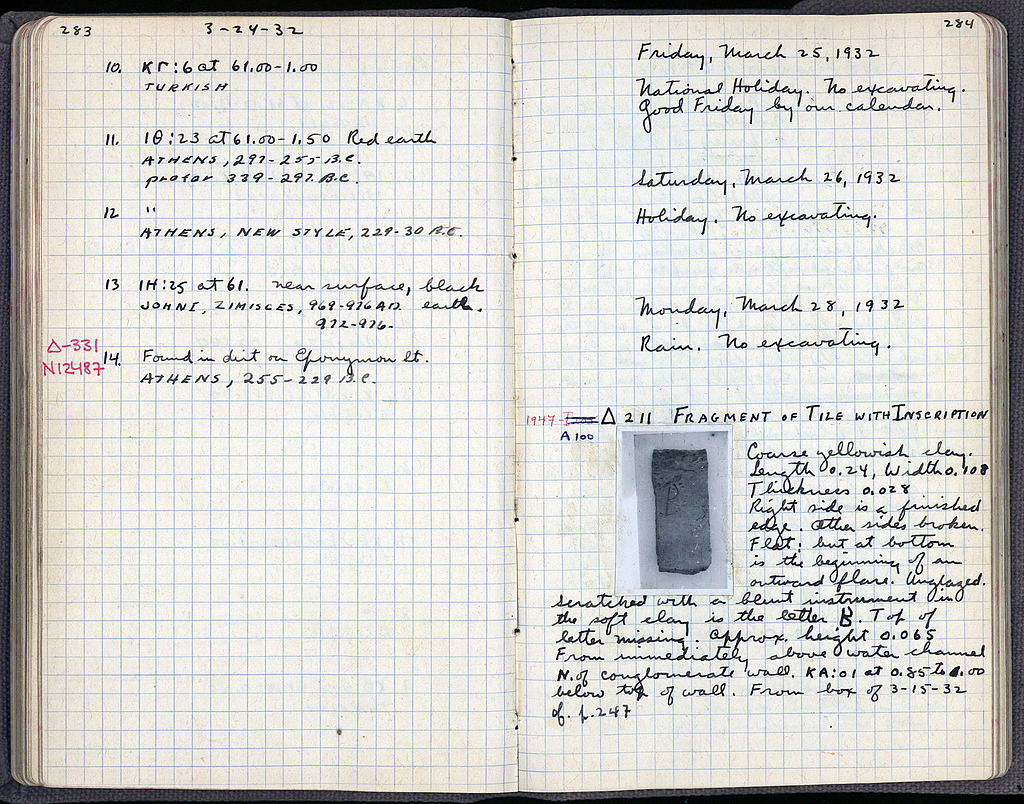 283
3-24-32
10. KΓ:6 at 61.00-1.00
TURKISH
11. ΙΘ:23 at 61.00-1.50 Red earth
ATHENS, 297-255 B.C.
prior 339-297 B.C.
12 "
ATHENS, NEW STYLE, 229-30 B.C.
13 ΙΗ:25 at 61. near surface, black
JOHN I, ZIMISCES, 969-976 A.D. earth.
972-976-
Δ-331
N12487
14. Found in dirt on Eponymon St.
ATHENS, 255-229 B.C.
284
Friday, March 25, 1932
National Holiday. No excavating.
Good Friday by our calendar.
Saturday, March 26, 1932
Holiday. No excavating.
Monday, March 28, 1932
Rain. No excavating.
1947- Δ 211 FRAGMENT OF TILE WITH INSCRIPTION
A 100
Coarse yellowish clay.
Length 0.24, Width 0.108
Thickness 0.028
Right side is a finished
edge. Other sides broken.
Flat; but at bottom
is the beginning of an
outward flare. Unglazed.
Scratched with a blunt instrument in
the soft clay is the letter B. Top of
letter missing. Approx. height 0.065
From immediately above water channel
N. of conglomerate wall. KA:01 at 0.85 to 1.00
below top of wall. From box of 3-15-32
cf. p.247